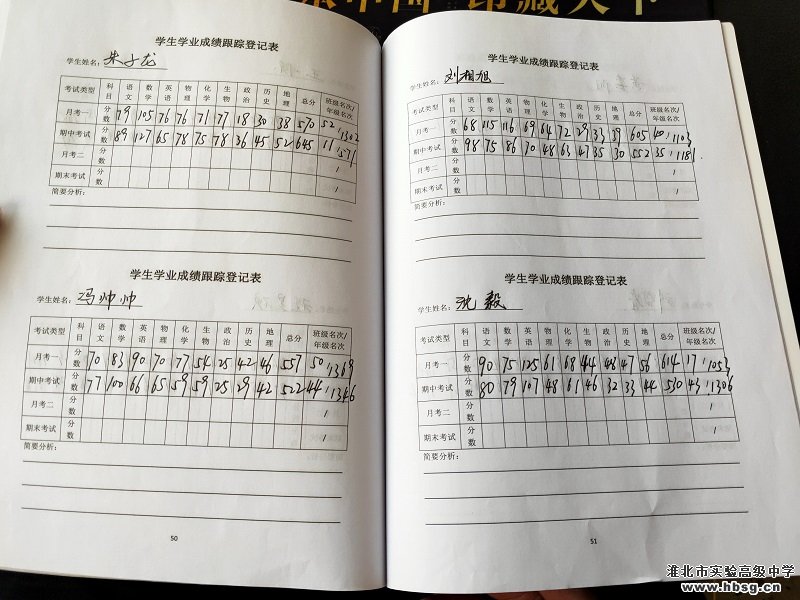 学生学业成绩跟踪登记表
学生姓名： 朱子龙
考试类型 科目 语文 数学 英语 物理 化学 生物 政治 历史 地理 总分 班级名次/年级名次
月考一 分数 79 105 76 76 71 77 18 30 38 570 52 / 1302
期中考试 分数 89 127 65 78 75 78 36 45 52 645 11 / 571
月考二 分数 /
期末考试 分数 /
简要分析：
学生学业成绩跟踪登记表
学生姓名： 冯帅帅
考试类型 科目 语文 数学 英语 物理 化学 生物 政治 历史 地理 总分 班级名次/年级名次
月考一 分数 70 83 90 70 77 54 25 42 46 557 50 / 1369
期中考试 分数 77 100 66 65 59 59 25 29 42 522 44 / 1346
月考二 分数 /
期末考试 分数 /
简要分析：
50
学生学业成绩跟踪登记表
学生姓名： 刘相旭
考试类型 科目 语文 数学 英语 物理 化学 生物 政治 历史 地理 总分 班级名次/年级名次
月考一 分数 68 115 116 69 64 72 29 33 39 605 40 / 1103
期中考试 分数 98 75 86 70 48 63 47 35 30 552 35 / 1181
月考二 分数 /
期末考试 分数 /
简要分析：
学生学业成绩跟踪登记表
学生姓名： 沈毅
考试类型 科目 语文 数学 英语 物理 化学 生物 政治 历史 地理 总分 班级名次/年级名次
月考一 分数 90 75 125 61 68 44 48 47 56 614 17 / 1053
期中考试 分数 80 79 107 48 61 46 32 33 44 530 43 / 1306
月考二 分数 /
期末考试 分数 /
简要分析：
51
淮北市实验高级中学
www.hbsg.cn